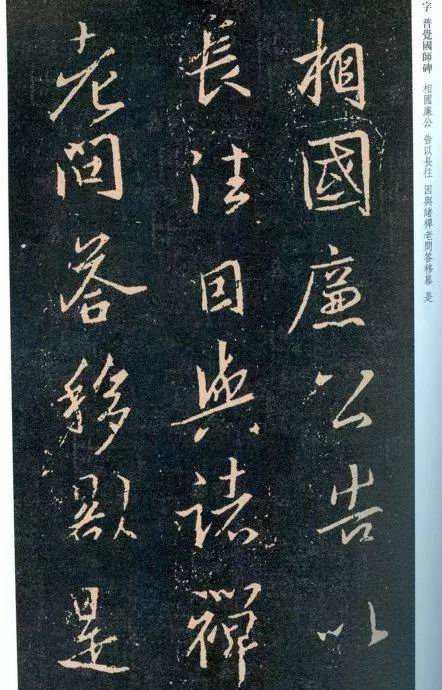 字 普覺國師碑 相國廉公 告以長往 因與諸禪老問答移晷 是
相國廉公告以
長往因與諸禪
老問答移晷是